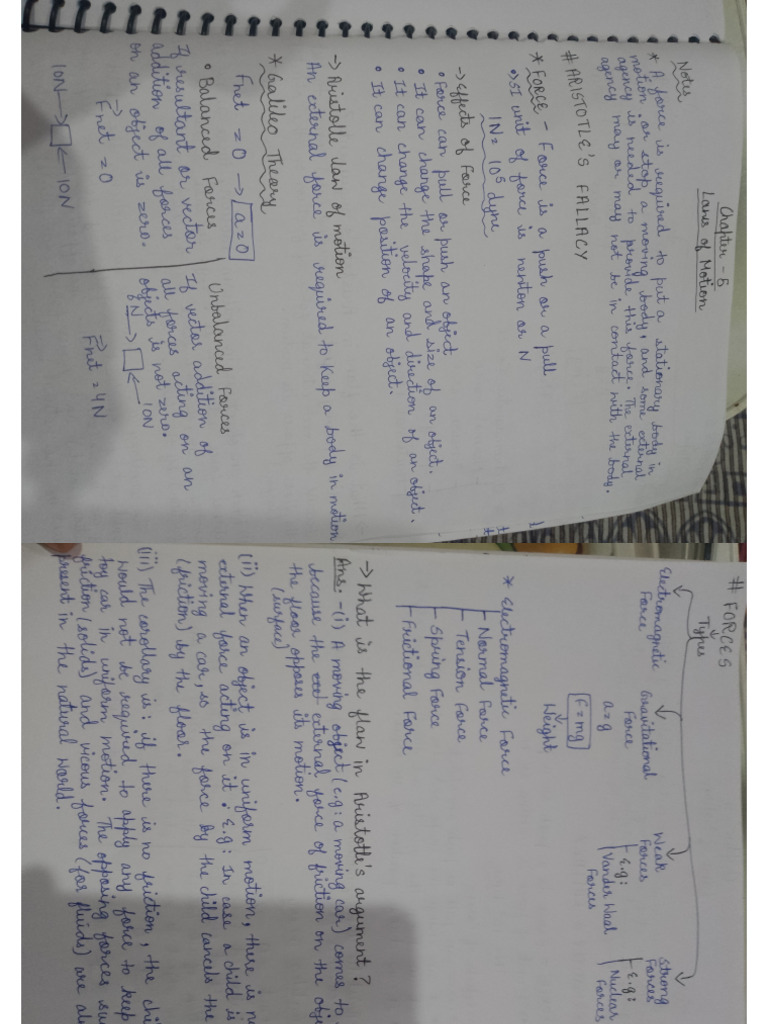 Chapter - 5
Laws of Motion
Notes
* A force is required to put a stationary body in
motion or stop a moving body, and some external
agency is needed to provide this force. The external
agency may or may not be in contact with the body.
# ARISTOTLE'S FALLACY
* FORCE - Force is a push or a pull
SI unit of force is newton or N
1N = 10⁵ dyne
→ Effects of Force
• Force can pull or push an object
• It can change the shape and size of an object.
• It can change the velocity and direction of an object.
• It can change position of an object.
→ Aristotle law of motion
An external force is required to keep a body in motion
* Galileo Theory
Fnet = 0 → a=0
• Balanced Forces
If resultant or vector
addition of all forces
on an object is zero.
Fnet = 0
10N → ← 10N
Unbalanced Forces
If vector addition of
all forces acting on an
objects is not zero.
→ ← 10N
Fnet = 4N
# FORCES
Types
Electromagnetic
Force
Gravitational
Force
a=g
F=mg
Weight
Weak
Forces
E.g:
Vander Waal
Forces
Strong
Forces
E.g:
Nuclear
Forces
* Electromagnetic Force
Normal Force
Tension Force
Spring Force
Frictional Force
→ What is the flaw in Aristotle's argument?
Ans:-(i) A moving object (e.g: a moving car) comes to
because the external force of friction on the
the floor opposes its motion.
(surface)
(ii) When an object is in uniform motion, there is
external force acting on it. E.g: In case a child is
moving a car, so the force by the child cancels the
(friction) by the floor.
(iii) The corollary is: if there is no friction, the
would not be required to apply any force to keep
toy car in uniform motion. The opposing forces
friction (solids) and vicous forces (for fluids) are
present in the natural world.